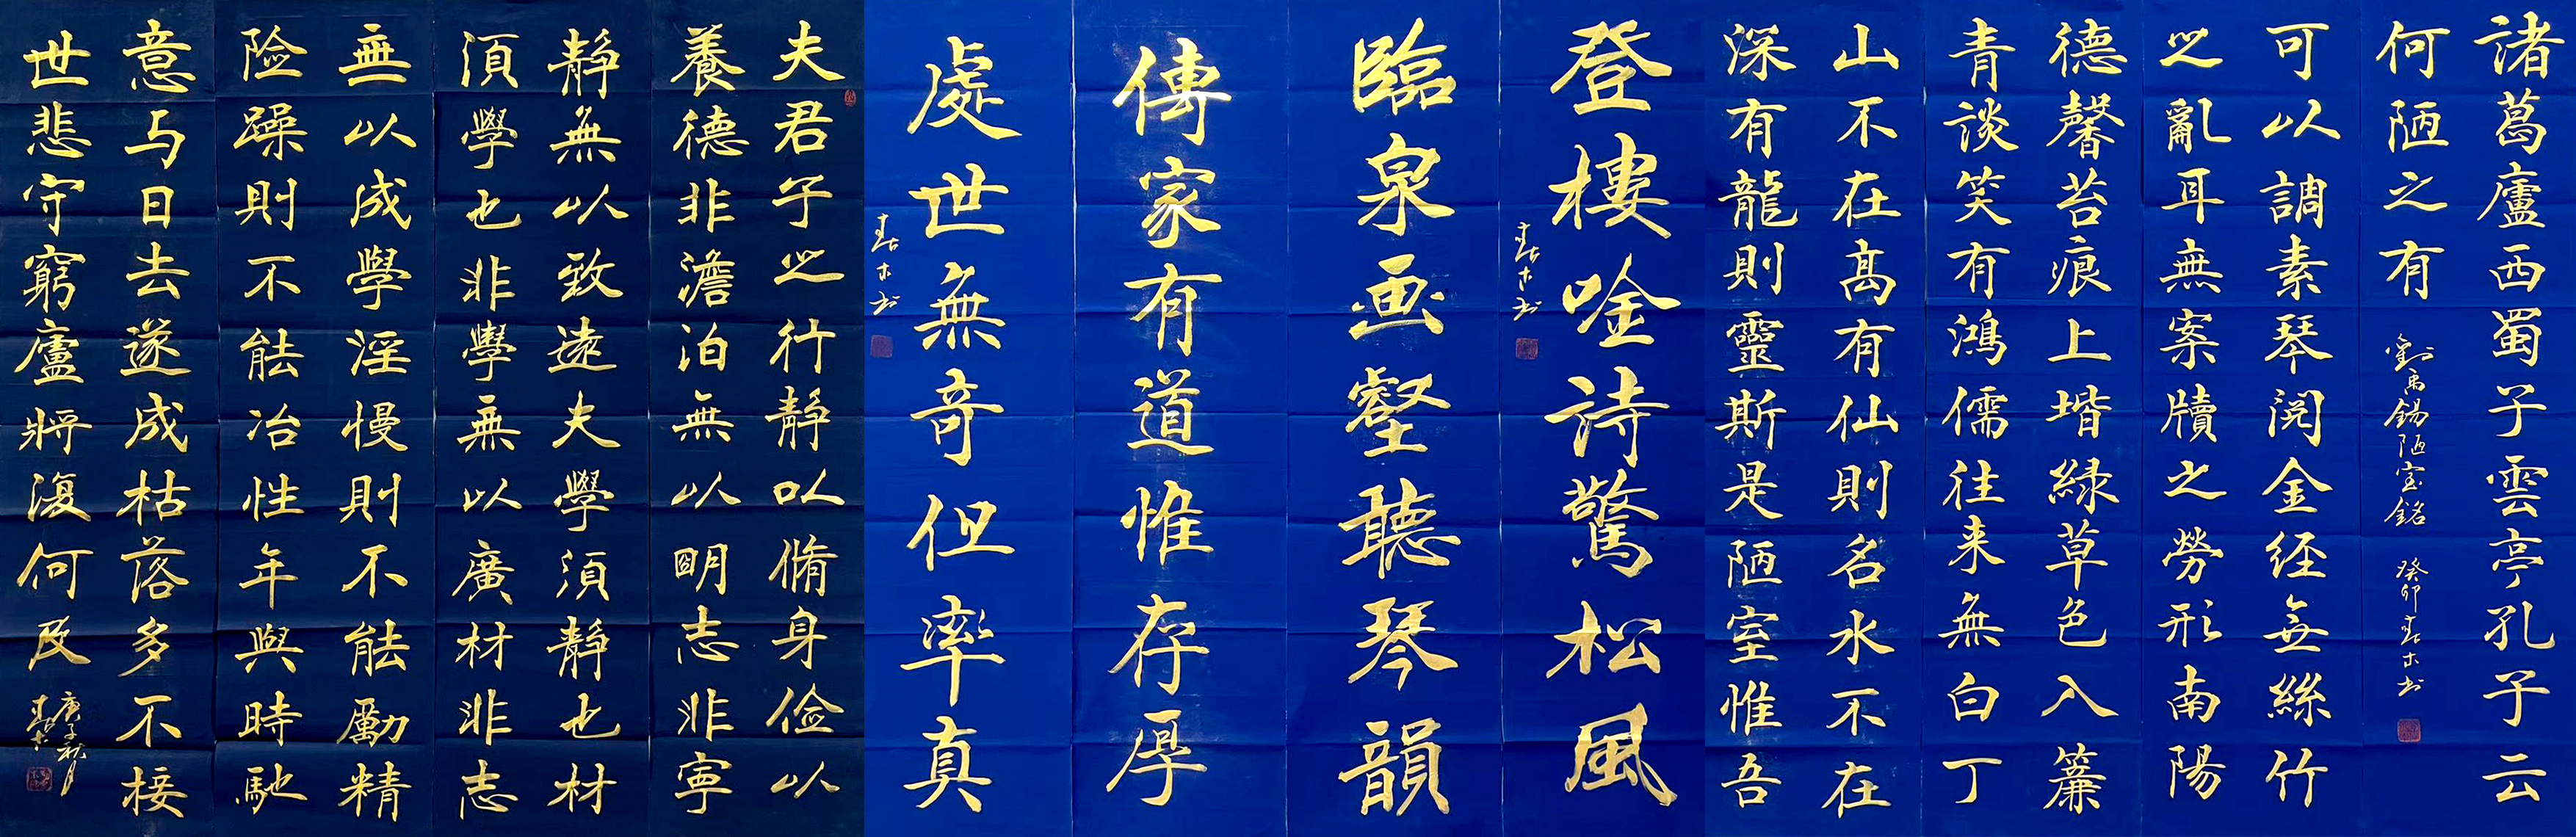 夫君子之行静以脩身儉以
養德非澹泊無以明志非寧
靜無以致遠夫學須靜也材
須學也非學無以廣材非志
無以成學淫慢則不能勵精
险躁則不能冶性年與時馳
意与日去遂成枯落多不接
世悲守窮廬將復何及
庚子秋月
春木
登樓唫詩驚松風
臨泉画壑聽琴韻
春木书
傳家有道惟存厚
處世無奇但率真
春木书
山不在高有仙則名水不在
深有龍則靈斯是陋室惟吾
德馨苔痕上堦緑草色入簾
青談笑有鴻儒往来無白丁
可以調素琴閲金経無絲竹
之亂耳無案牘之勞形南陽
諸葛廬西蜀子雲亭孔子云
何陋之有
劉禹錫陋室銘 癸卯春木书